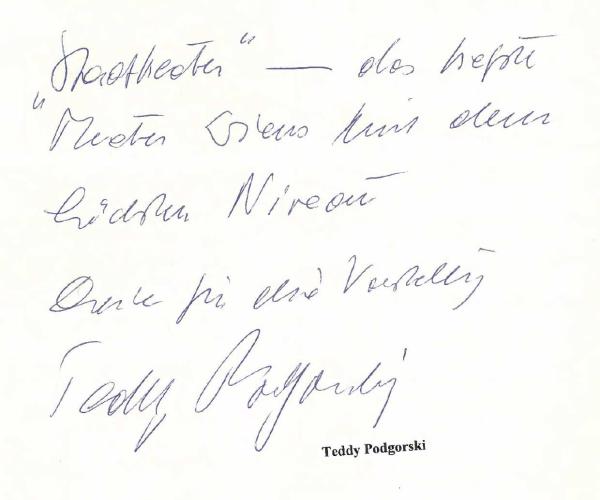 "Stadttheater" — das tiefste
"Theater Wiens mit dem
höchsten Niveau
Danke für die Vorstellung
Teddy Podgorski
Teddy Podgorski